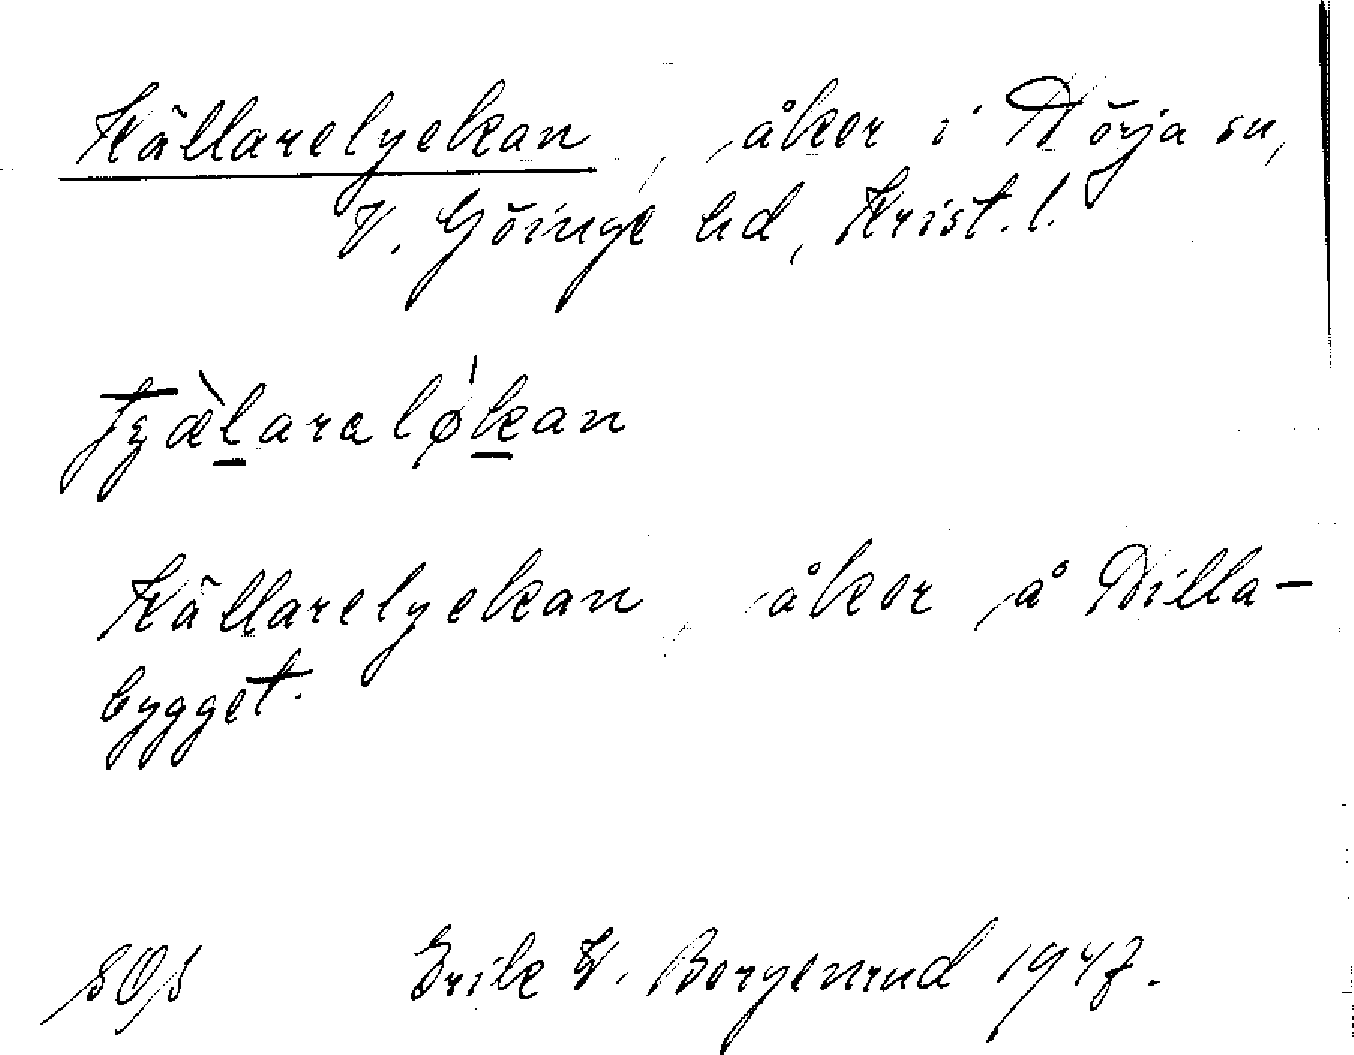 Källarelyckan, åker i Nörja sn,
V. Göinge hd, Krist. l.
tʒæ̀laralø̍kan
Källarelyckan, åker å Dilla-
bygget.
SOS Erik W. Borgenrud 1947.